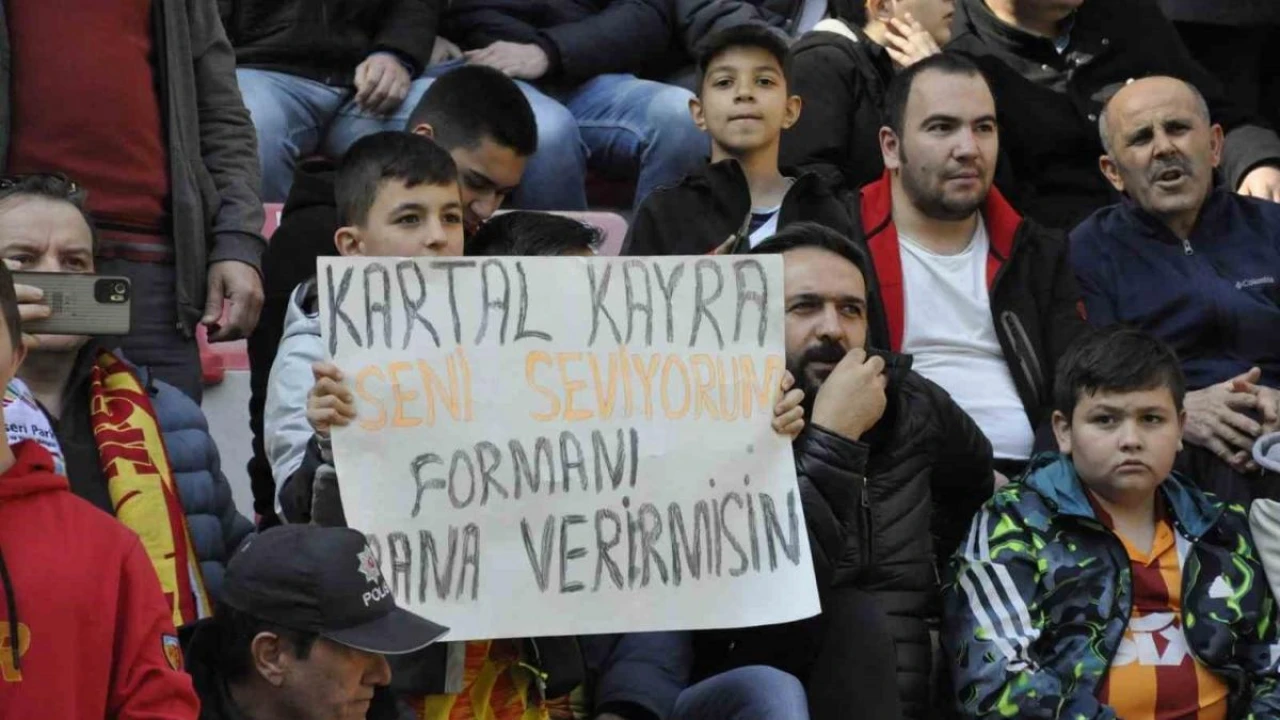 KARTAL KAYRA
SENİ SEVİYORUM
FORMANI
BANA VERİRMİSİN
POLİS
Columbia